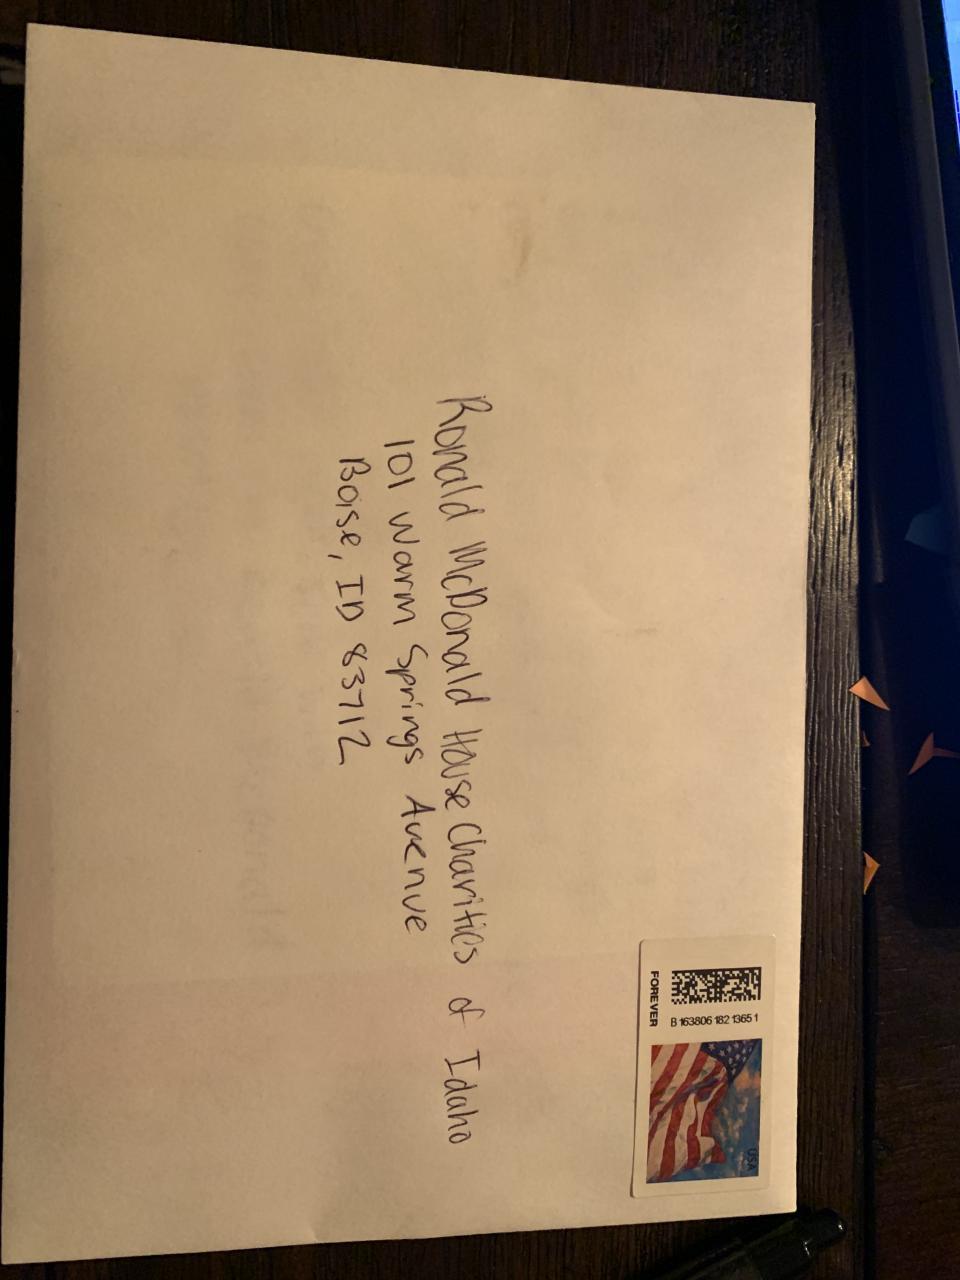 Ronald McDonald House Charities of Idaho
101 Warm Springs Avenue
Boise, ID 83712
FOREVER
B 163806 182 13651
USA